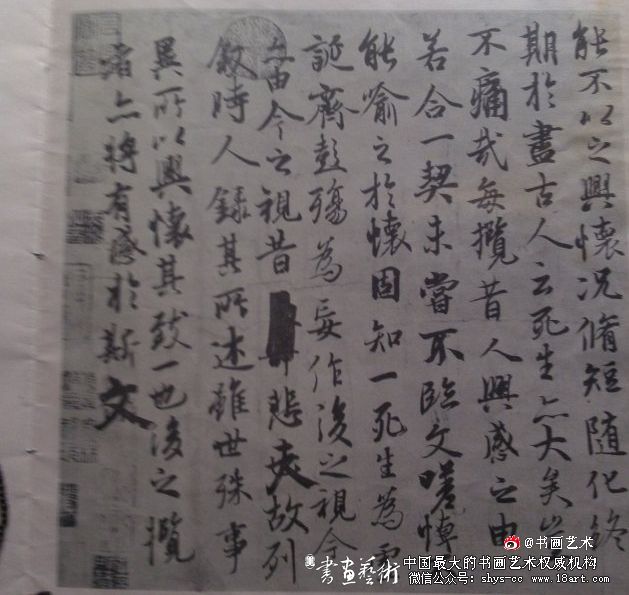 能不以之興懷況脩短隨化終
期於盡古人云死生亦大矣豈
不痛哉每攬昔人興感之由
若合一契未嘗不臨文嗟悼
能喻之於懷固知一死生為虛
誕齊彭殤為妄作後之視今
亦由今之視昔悲夫故列
敘時人錄其所述雖世殊事
異所以興懷其致一也後之攬
者亦將有感於斯文
@书画艺术
書畫藝術 中国最大的书画艺术权威机构
微信公众号: shys-cc www.18art.com